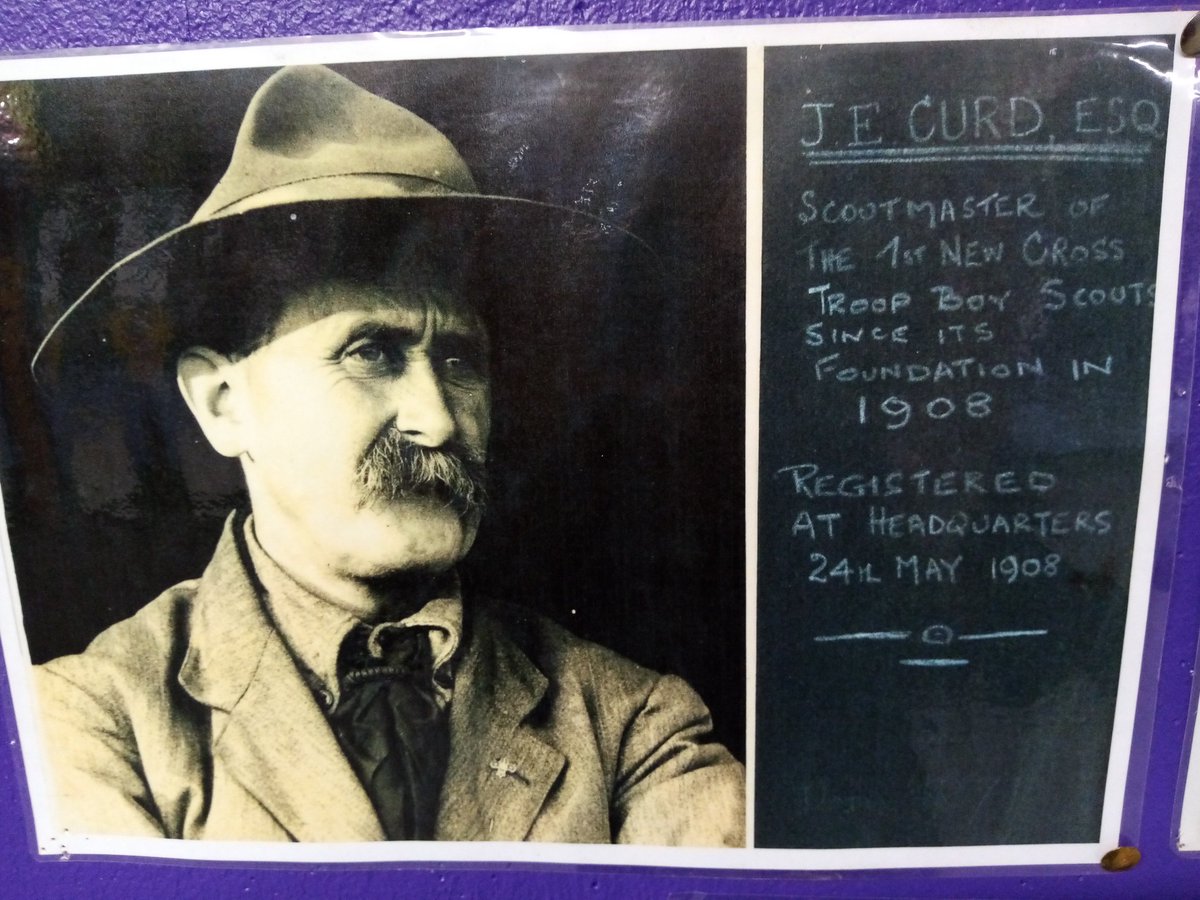 J. E CURD, ESQ
SCOUTMASTER OF
THE 1ST NEW CROSS
TROOP BOY SCOUTS
SINCE ITS
FOUNDATION IN
1908
REGISTERED
AT HEADQUARTERS
24TH MAY 1908